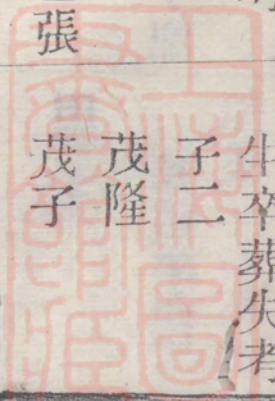 生卒葬失考
子二
茂隆
茂子
張